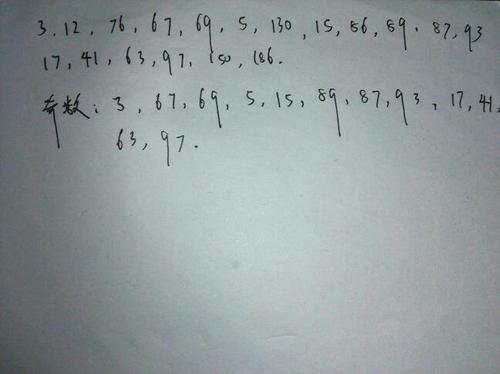 3,12,76,67,69,5,130,15,86,89,87,93
17,41,63,97,150,186.
奇数:3,67,69,5,15,89,87,93,17,41,
63,97.